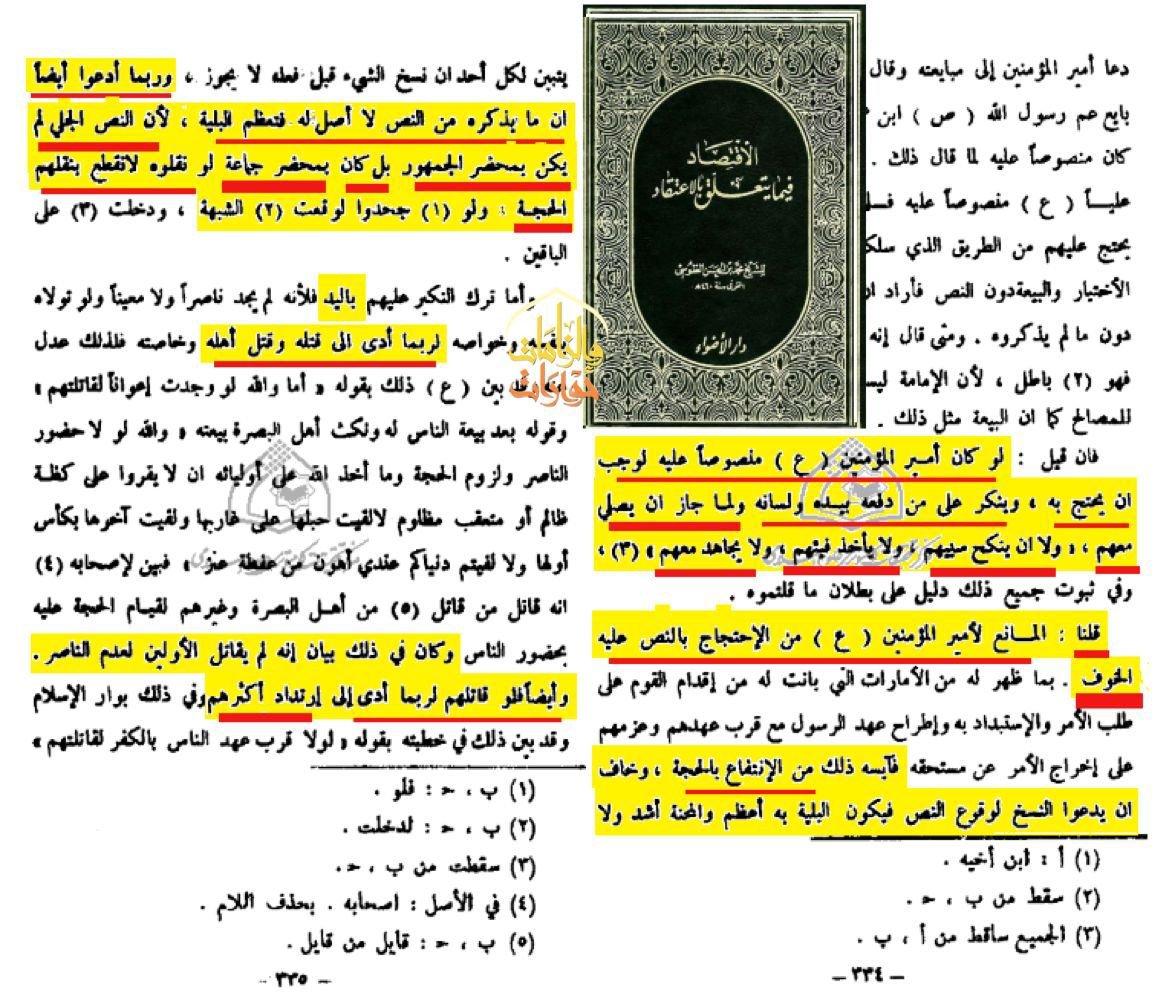 دعا أمير المؤمنين إلى مبايعته وقال
بايع عم رسول الله ( ص ) ابن
كان منصوصاً عليه لما قال ذلك .
عليـاً ( ع ) منصوصاً عليه فلـ
يحتج عليهم من الطريق الذي سلكـ
الأختيار والبيعةدون النص فأراد ان
دون مالم يذكروه . ومتى قال إنه
فهو (٢) باطل ، لأن الإمامة ليسـ
للمصالح كما ان البيعة مثل ذلك .
فان قيل : لو كان أمير المؤمنين ( ع ) منصوصاً عليه لوجب
ان يحتج به ، وينكر على من دفعه بيـده ولسانه ولما جاز ان يصلي
معهم ، ولا ان ينكح سبيهم ، ولا يأخذ فيئهم ، ولا يجاهد معهم » (٣) ،
وفي ثبوت جميع ذلك دليل على بطلان ما قلتموه .
قلنا : المـانع لأمير المؤمنين ( ع ) من الإحتجاج بالنص عليه
الخوف . بما ظهر له من الأمارات التي بانت له من إقدام القوم على
طلب الأمر والإستبداد به وإطراح عهد الرسول مع قرب عهدهم وعزمهم
على إخراج الأمر عن مستحقه فآيسه ذلك من الإنتفاع بالحجة ، وخاف
ان يدعوا النسخ لوقوع النص فيكون البلية به أعظم والمحنة أشد ولا
(١) أ : ابن أخيه .
(٢) سقط من ب ، حـ .
(٣) الجميع ساقط من أ ، ب .
– ٣٣٤ –
الاقتصاد
فيما يتعلق بالاعتقاد
للشيخ محمد بن الحسن الطوسي
المتوفى سنة ٤٦٠هـ
دار الأضواء
يتبين لكل أحد ان نسخ الشيء قبل فعله لا يجوز ، وربما أدعوا أيضاً
ان ما يذكره من النص لا أصل له فتعظم البلية ، لأن النص الجلي لم
يكن بمحضر الجمهور بل كان بمحضر جماعة لو نقلوه لانقطع بنقلهم
الحجة : ولو (١) جحدوا لوقعت (٢) الشبهة ، ودخلت (٣) على
الباقين .
وأما ترك النكير عليهم باليد فلأنه لم يجد ناصراً ولا معيناً ولو تولاه
بنفسه وخواصه لربما أدى الى قتله وقتل أهله وخاصته فلذلك عدل
بين ( ع ) ذلك بقوله « أما والله لو وجدت إعواناً لقاتلتهم »
وقوله بعد بيعة الناس له ونكث أهل البصرة بيعته « والله لو لا حضور
الناصر ولزوم الحجة وما أخذ الله على أوليائه ان لا يقروا على كظـة
ظالم أو متعقب مظلوم لالقيت حبلها على غاربها ولقيت آخرها بكأس
أولها ولا لفيتم دنياكم عندي أهون من عفطة عنز » فبين لإصحابه (٤)
انه قاتل من قاتل (٥) من أهـل البصرة وغيرهم لقيام الحجة عليه
بحضور الناس وكان في ذلك بيان إنه لم يقاتل الأولين لعدم الناصر .
وأيضاً فلو قاتلهم لربما أدى إلى إرتداد أكثرهم وفي ذلك بوار الإسلام
وقد بين ذلك في خطبته بقوله « لولا قرب عهد الناس بالكفر لقاتلتهم »
(١) ب ، حـ : فلو .
(٢) ب ، حـ : لدخلت .
(٣) سقطت من ب ، حـ .
(٤) في الأصل : اصحابه . بحذف اللام .
(٥) ب ، حـ : قايل من قايل .
– ٣٣٥ –